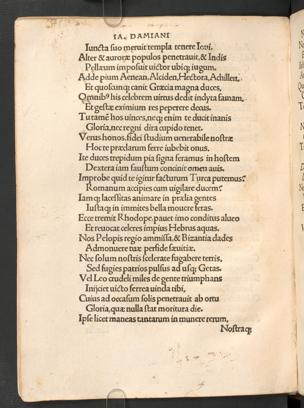 IA. DAMIANI
Iuncta suo meruit templa tenere Ioui.
Alter & auroræ populos penetrauit, & Indis
Pellæum imposuit uictor ubiq; iugum.
Adde pium Aenean, Alciden, Hectora, Achillen,
Et quoscunq; canit Græcia magna duces.
Omnibꝰ his celebrem uirtus dedit indyta famam,
Et gestæ eximium res peperere decus.
Tu tamē hos uinces, neq; enim te ducit inanis
Gloria, nec regni dira cupido tenet.
Verus honos, fidei studium uenerabile nostræ
Hoc te præclarum ferre iubebit onus.
Ite duces trepidum pia signa feramus in hostem
Dextera iam faustum concinit omen auis.
Improbe quid te igitur facturum Turca putemus?
Romanum accipies cum uigilare ducem?
Iamq; lacessitas animate in prælia gentes
Iustaq; in immites bella mouere feras.
Ecce tremit Rhodope, pauet imo conditus alueo
Et reuocat celeres impius Hebrus aquas.
Nos Pelopis regio ammissa, & Bizantia clades
Admonuere tuæ perfide sæuitiæ.
Nec solum nostris scelerate fugabere terris,
Sed fugies patrios pulsus ad usq; Getas.
Vel Leo crudeli miles de gente triumphans
Inijciet uicto ferrea uincla tibi,
Cuius ad occasum solis penetrauit ab ortu
Gloria, quæ nulla stat moritura die.
Ipse licet maneas tantarum in munere rerum,
Nostraq;